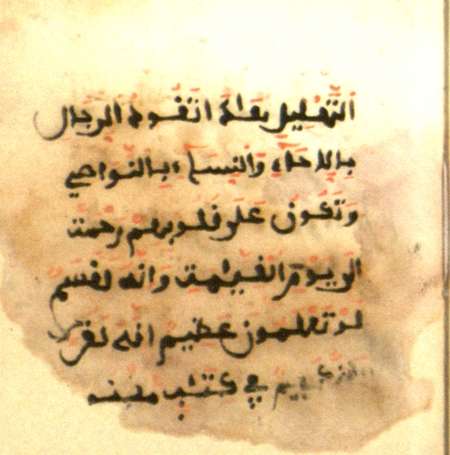 التهليل بعلة ان تقود الرجال
باللحاء والنساء بالنواصي
وتكون على قلوبهم رحمة
الى يوم القيمة وانه لقسم
لو تعلمون عظيم انه لقر
كريم في كتب